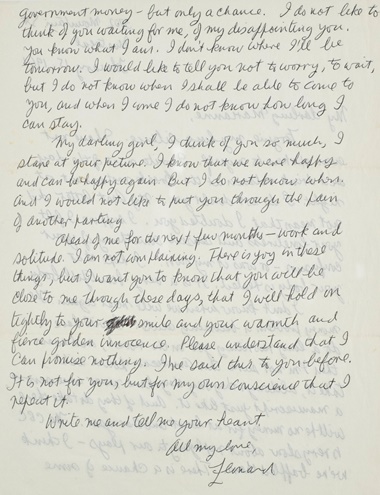 Government money - but only a chance. I do not like to
think of you waiting for me, of my disappointing you.
You know what I am. I don't know where I'll be
tomorrow. I would like to tell you not to worry, to wait,
but I do not know when I shall be able to come to
you, and when I come I do not know how long I
can stay.
My darling girl, I think of you so much, I
stare at your picture. I know that we were happy
and can be happy again. But I do not know when.
And I would not like to put you through the pain
of another parting
Ahead of me for the next few months - work and
solitude. I am not complaining. There is joy in these
things, but I want you to know that you will be
close to me through these days, that I will hold on
tightly to your smile and your warmth and
fierce golden innocence. Please understand that I
can promise nothing. I've said this to you before.
It is not for you, but for my own conscience that I
repeat it.
Write me and tell me your heart.
All my love,
Leonard